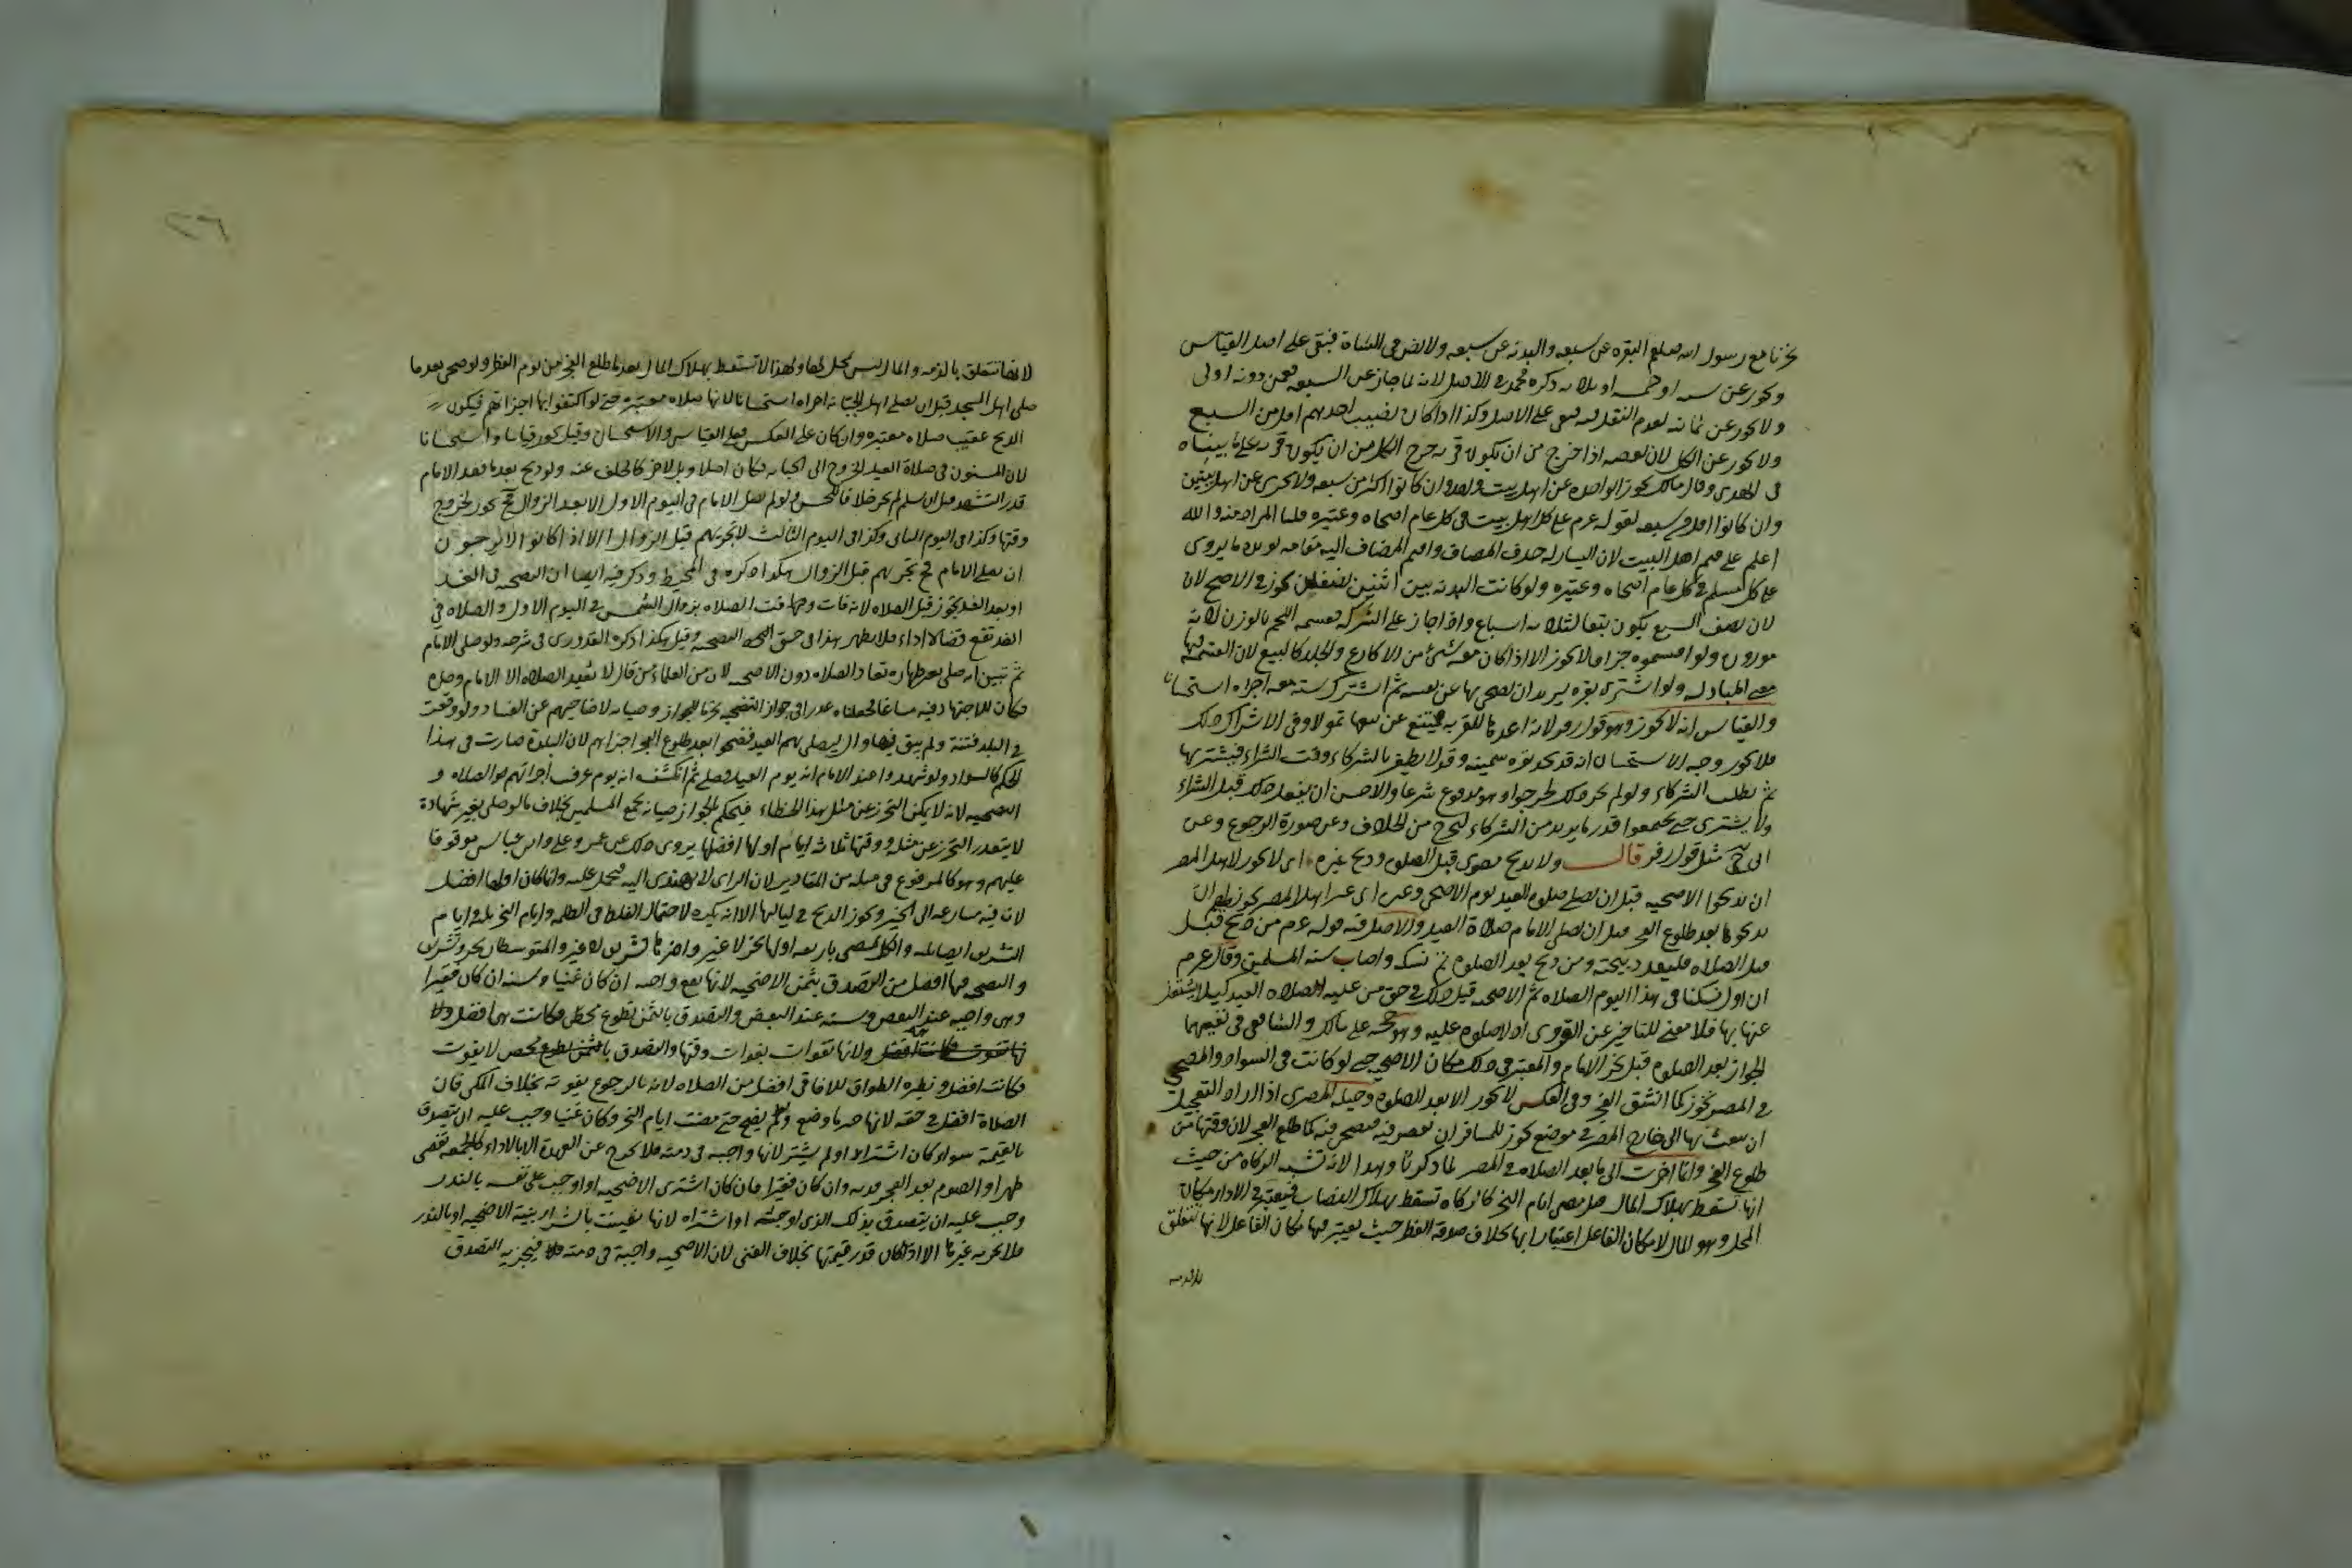 نحرنا مع رسول الله صلعم البقره عن سبعه والبدنه عن سبعه ولا نص في الشاة فبقي على اصل القياس
ويجوز عن سته او خمسه او ثلاثه ذكره محمد في الاصل لانه لما جاز عن السبعه فعمن دونه اولى
ولا يجوز عن ثمانيه لعدم النقل فيه فبقي على الاصل وكذا اذا كان نصيب احدهم اقل من السبع
ولا يجوز عن الكل لان بعضه اذا خرج من ان يكون قربه خرج الكل من ان يكون قربه على ما بيناه
في الهدى وقال مالك يجوز الواحده عن اهل بيت واحد وان كانوا اكثر من سبعه ولا يجزى عن اهل بيتين
وان كانوا اقل من سبعه لقوله عم على كل اهل بيت في كل عام اضحاه وعتيره قلنا المراد منه والله
اعلم على قيم اهل البيت لان اليسار له حذف المضاف واقيم المضاف اليه مقامه يويده ما يروى
على كل مسلم في كل عام اضحاه وعتيره ولو كانت البدنه بين اثنين نصفين يجوز في الاصح لان
لان نصف السبع يكون تبعا لثلاثه اسباع واذا جاز على الشركه فقسمه اللحم بالوزن لانه
موزون ولو اقتسموه جزافا لا يجوز الا اذا كان معه شئ من الاكارع والجلد كالبيع لان القسمه فيها
معنى المبادله ولو اشترى بقره يريد ان يضحى بها عن نفسه ثم اشترك سته معه اجزاه استحسانا
والقياس انه لا يجوز وهو قول زفر لانه اعدها للقربه فيمتنع عن بيعها تمولا وفي الاشراك ذلك
فلا يجوز وجه الاستحسان انه قد يجد بقره سمينه وقد لا يظفر بالشركاء وقت الشراء فيشتريها
ثم يطلب الشركاء ولو لم يجز ذلك لحرجوا وهو مدفوع شرعا والاحسن ان يفعل ذلك قبل الشراء
ولا يشترى حتى يجتمعوا قدر ما يريد من الشركاء ليخرج من الخلاف وعن صورة الرجوع وعن
ابى ح مثل قول زفر قال ولا يذبح مصرى قبل الصلوه وذبح غيره اى لا يجوز لاهل المصر
ان يذبحوا الاضحيه قبل ان يصلى صلوه العيد يوم الاضحى وغيره اى غير اهل المصر يجوز لهم ان
يذبحوها بعد طلوع الفجر قبل ان يصلى الامام صلاة العيد والاصل فيه قوله عم من ذبح قبل
قبل الصلاه فليعد ذبيحته ومن ذبح بعد الصلوه تم نسكه واصاب سنه المسلمين وقال عم
ان اول نسكنا في هذا اليوم الصلاه ثم الاضحيه قيل ذلك في حق من عليه الصلاه العيد كيلا يشتغل
عنها بها فلا معنى للتاخير عن القروى اذ لا صلوه عليه وهو حجه على مالك والشافعى في نفيهما
الجواز بعد الصلوه قبل نحر الامام والمعتبر في ذلك مكان الاضحيه حتى لو كانت في السواد والمضحى
في المصر تجوز كما انشق الفجر وفي العكس لا يجوز الا بعد الصلوه وحيله المصرى اذا اراد التعجيل
ان يبعث بها الى خارج المصر في موضع يجوز للمسافر ان يقصر فيه فيضحى فيه كما طلع الفجر لان وقتها من
طلوع الفجر وانما اخرت الى ما بعد الصلاه في المصر لما ذكرنا وهذا لانه تشبه الزكاه من حيث
انها تسقط بهلاك المال قبل مضى ايام النحر كالزكاه تسقط بهلاك النصاب فيعتبر في الاداء مكان
المحل وهو المال لا مكان الفاعل اعتبارا بها بخلاف صدقه الفطر حيث يعتبر فيها مكان الفاعل لانها تتعلق
بالذمه
٢٦
لانها تتعلق بالذمه والمال ليس بمحل لها ولهذا لا تسقط بهلاك المال بعد ما طلع الفجر من يوم الفطر ولو ضحى بعد ما
صلى اهل المسجد قبل ان يصلى اهل الجبانه اجزاه استحسانا لانها صلاه معتبره حتى لو اكتفوا بها اجزاتهم فيكون
الذبح عقيب صلاه معتبره وان كان على العكس فعلى القياس والاستحسان وقيل يجوز قياسا واستحسانا
لان المسنون في صلاة العيد الخروج الى الجبانه فكان اصلا وبل لاخر كالخلف عنه ولو ذبح بعد ما قعد الامام
قدر التشهد قبل ان يسلم لم يجز خلافا للحسن ولو لم يصل الامام في اليوم الاول الا بعد الزوال ح يجوز لخروج
وقتها وكذا في اليوم الثانى وكذا في اليوم الثالث لا تجزيهم قبل الزوال الا اذا كانوا لا يرجون
ان يصلى الامام فح تجزيهم قبل الزوال هكذا ذكره في المحيط وذكر فيه ايضا ان التضحيه في الغد
او بعد الغد يجوز قبل الصلاه لانه فات وقت الصلاه بزوال الشمس في اليوم الاول والصلاه في
الغد تقع قضاء لا اداء فلا يظهر هذا في حق التضحيه وقيل هكذا ذكره القدورى في شرحه ولو صلى الامام
ثم تبين انه صلى بغير طهاره تعاد الصلاه دون الاضحيه لان من العلماء من قال لا تعيد الصلاه الا الامام وحده
فكان للاجتهاد فيه مساغا فجعلناه عذرا في جواز التضحيه تحريا للجواز وصيانه لاضاحيهم عن الفساد ولو وقعت
في البلد فتنة ولم يبق فيها وال ليصلى بهم العيد فضحوا بعد طلوع الفجر اجزاهم لان البلدة صارت في هذا
الحكم كالسواد ولو شهدوا عند الامام انه يوم العيد فصلى ثم انكشف انه يوم عرفه اجزاتهم الصلاه و
التضحيه لانه لا يمكن التحرز عن مثل هذا الخطاء فيحكم بالجواز صيانه لجمع المسلمين بخلاف ما لو صلى بغير شهادة
لا يتعذر التحرز عن مثله ووقتها ثلاثه ايام اولها افضلها يروى ذلك عن عمر وعلى وابن عباس موقوفا
عليهم وهو كالمرفوع في مثله من المقادير لان الراى لا يهتدى اليه فيحمل عليه وانما كان اولها افضل
لان فيه مسارعه الى الخير ويجوز الذبح في لياليها الا انه يكره لاحتمال الغلط في الظلمه وايام النحر ثلاثه ايام
التشريق ايضا ثلاثه والكل يمضى باربعه اولها نحر لا غير واخرها تشريق لا غير والمتوسطان نحر وتشريق
والتضحيه فيها افضل من التصدق بثمن الاضحيه لانها تقع واجبه ان كان غنيا وسنه ان كان فقيرا
وهى واجبه عند البعض وسنه عند البعض والتصدق بالثمن تطوع محض فكانت هى افضل ولا
ولانها تفوات بفوات وقتها والتصدق بالثمن تطوع محض لا يفوت
فكانت افضل ونظيره الطواف للافاقى افضل من الصلاه لانه بالرجوع يفوته بخلاف المكى فان
الصلاة افضل في حقه ولو لم يضح حتى مضت ايام النحر وكان غنيا وجب عليه ان يتصدق
بالقيمة سواء كان اشتراها او لم يشتر لانها واجبه في ذمته فلا يخرج عن العهدة الا بالاداء كالجمعه تقضى
ظهرا والصوم بعد العجز فديه وان كان فقيرا فان كان اشترى الاضحيه او اوجب على نفسه بالنذر
وجب عليه ان يتصدق بذلك الذى اوجبه او اشتراه لانها تعينت بالشراء بنية الاضحيه او بالنذر
فلا يجزيه غيرها الا اذا كان قدر قيمتها بخلاف الغنى لان الاضحيه واجبة في ذمته فيجزيه التصدق